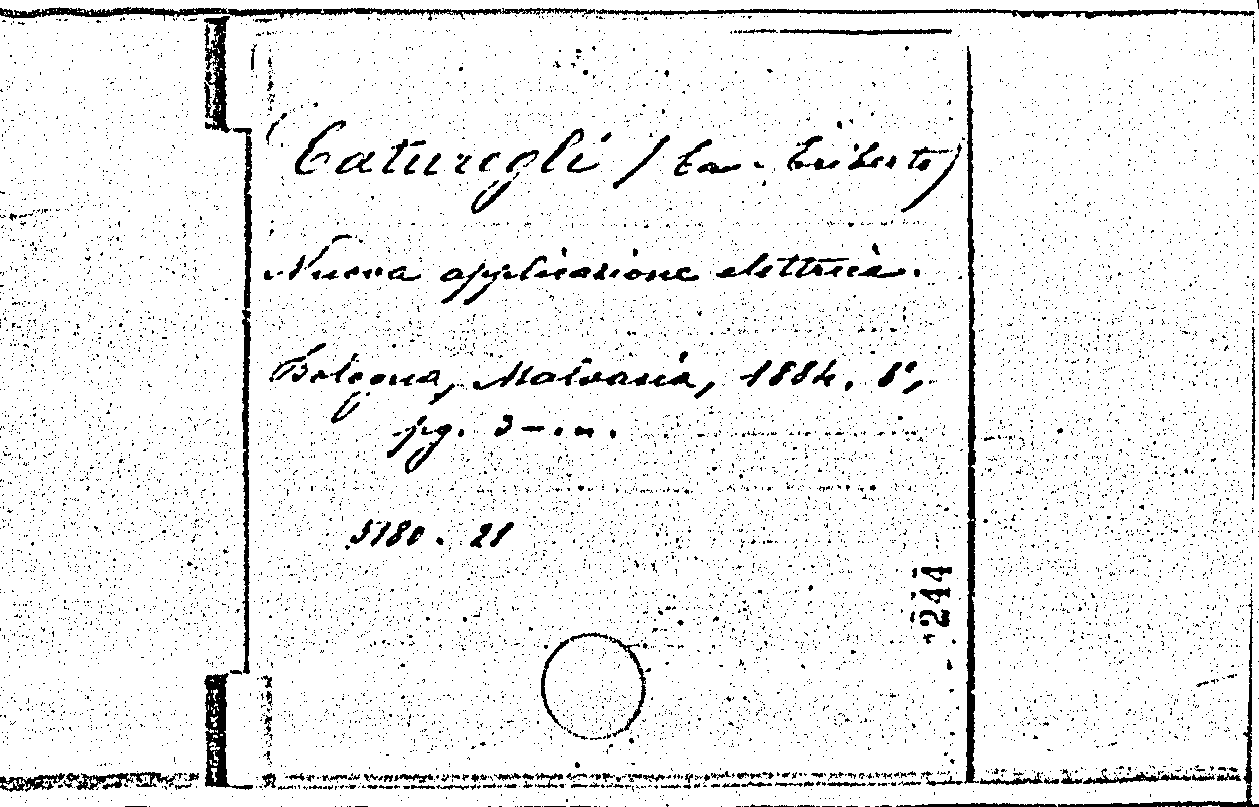 Caturegli (Ca. Eriberto)
Nuova applicazione elettrica.
Bologna, Malvasia, 1884. 8°,
pg. 3
5180. 21
244